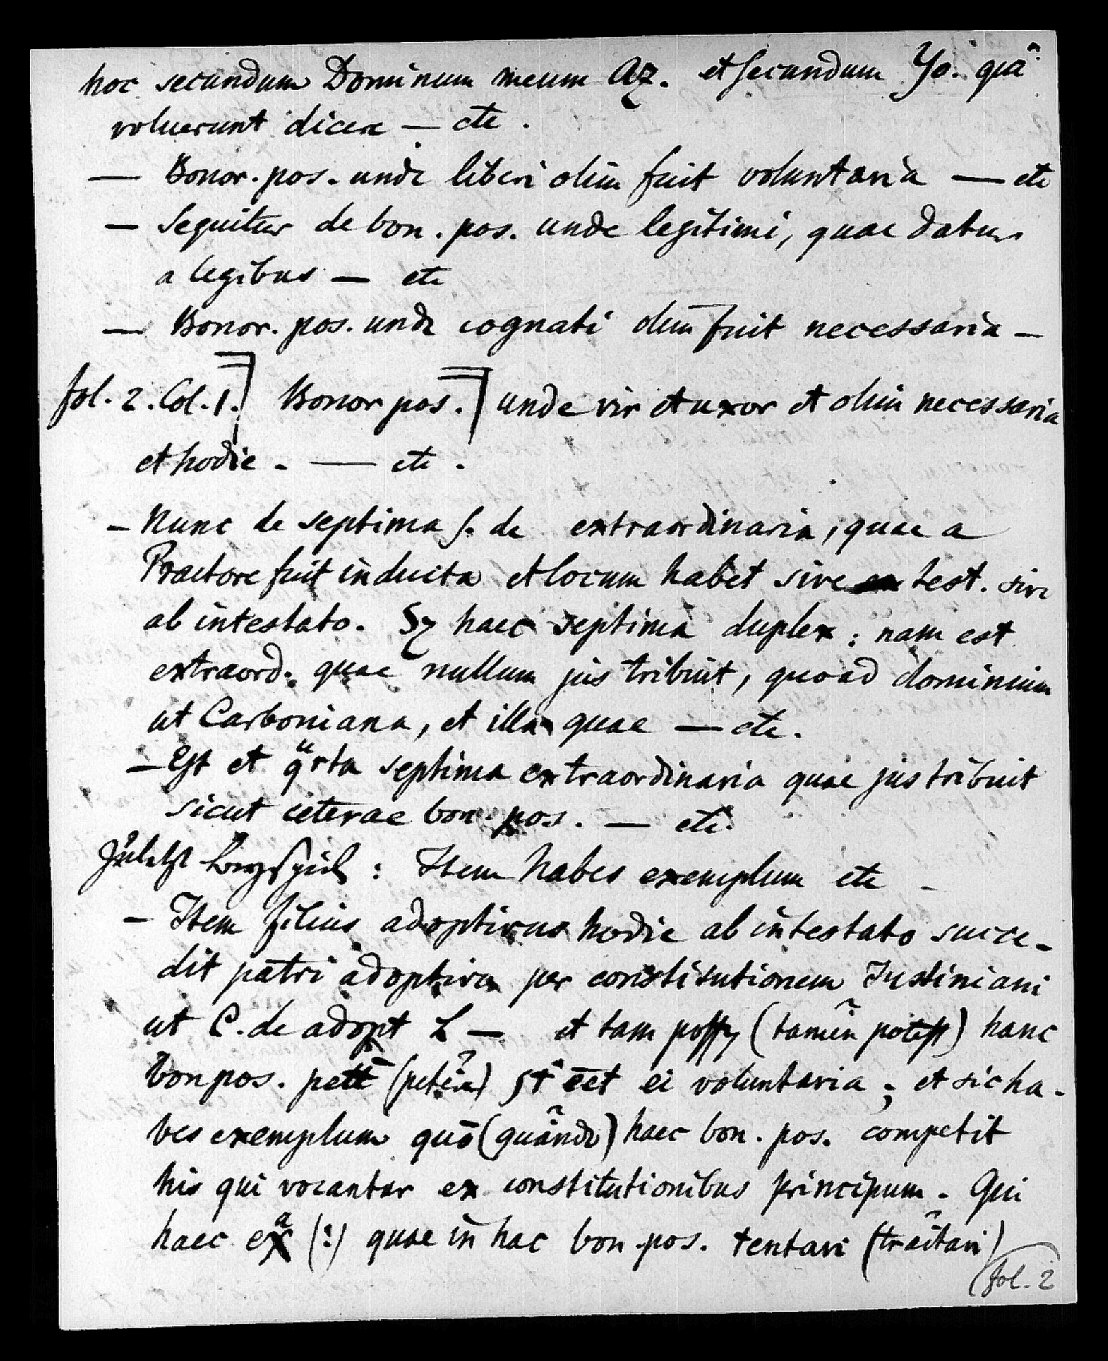 hoc secundum Dominum meum Az. et secundum Yo. quā
voluerunt dicere — etc.
— Bonor. pos. unde liberi olim fuit voluntaria — etc
— Sequitur de bon. pos. unde legitimi, quae datur
a legibus — etc
— Bonor. pos. unde cognati olim fuit necessaria —
fol. 2. Col. 1.] Bonor pos.] unde vir et uxor et olim necessaria
et hodie. — etc.
— Nunc de septima s. de extraordinaria, quae a
Praetore fuit inducta et locum habet sive test. sive
ab intestato. Sz haec septima duplex: nam est
extraord. quae nullum jus tribuit, quoad dominium
ut Carboniana, et illa quae — etc.
— Est et qrta septima extraordinaria quae jus tribuit
sicut ceterae bon. pos. — etc.
: Item habes exemplum etc —
— Item filius adoptivus hodie ab intestato succe-
dit patri adoptivo per constitutionem Justiniani
ut C. de adopt L — et tam possz (tamen potest) hanc
bon pos. pett (petere) st eet ei voluntaria; et sic ha-
bes exemplum quō (quando) haec bon. pos. competit
his qui vocantur ex constitutionibus principum. Qui
haec ex (?) quae in hac bon. pos. tentari (tractari)
fol. 2